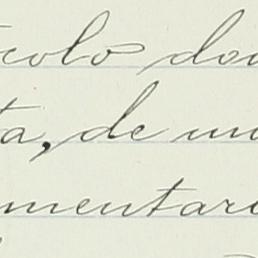 colo do
ta, de un
mentar